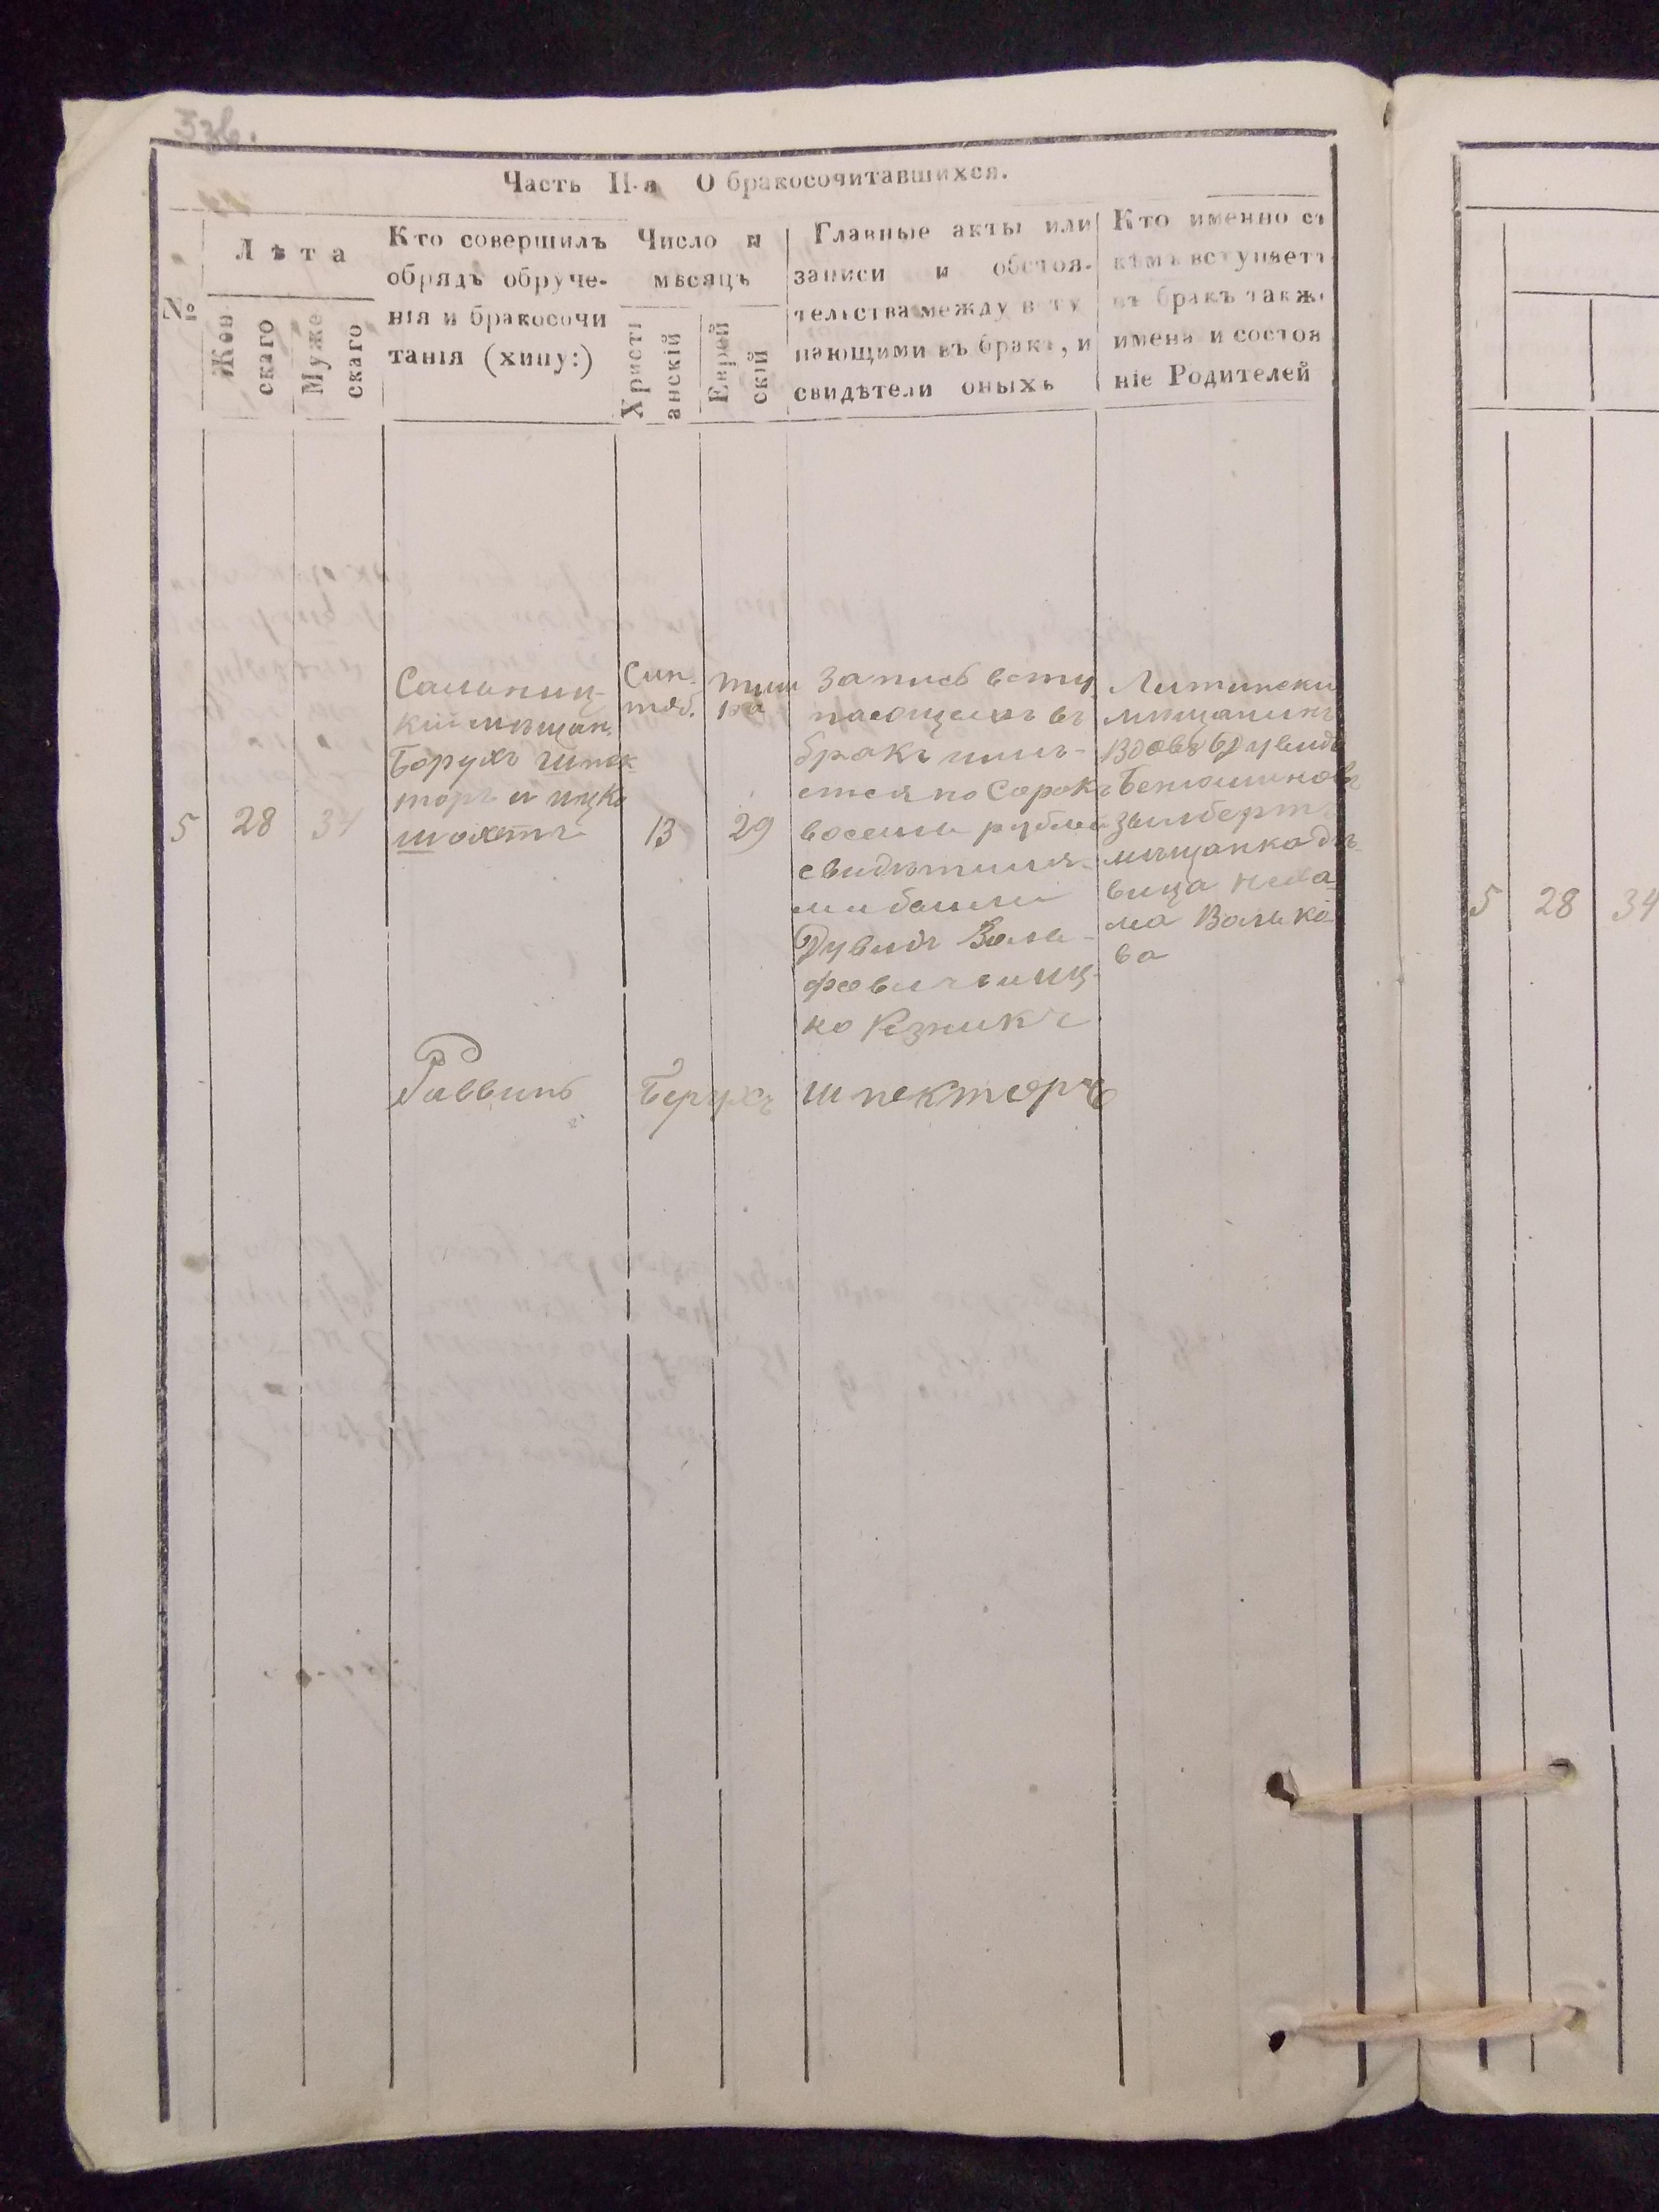 37об.
Часть II-я О бракосочитавшихся.
№
Лѣта
Жен
скаго
Муже
скаго
Кто совершилъ
обрядъ обруче-
нія и бракосочи
танія (хипу:)
Число и
мѣсяцъ
Христі
анскій
Еврей
скій
Главные акты или
записи и обстоя-
тельства между всту
пающими въ бракъ, и
свидѣтели оныхъ
Кто именно съ
кѣмъ вступаетъ
въ бракъ также
имена и состоя
ніе Родителей
5
28
34
Сальниц-
кій мѣщан.
Борухъ Шпек
торъ и ицко
шохетъ
Син-
тяб.
13
тиш
29
Запись всту
пающихъ въ
бракъ имѣ-
ется по Сорокъ
восемь рублей
свидѣтиля-
ми были
Дувидъ Воль-
фовичъ и иц-
ко Резникъ
Литински
мѣщанинъ
Вдовъ Дувидъ
Бенюминовъ
Зильбертъ
мѣщанка дѣ-
вица неха-
ма Волько
ва
Раввинъ Берухъ шпекторъ
5
28
34